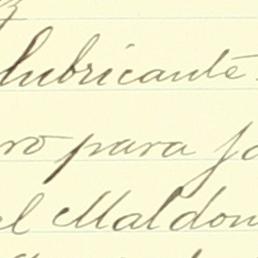 lubricante
ro para
el Maldon